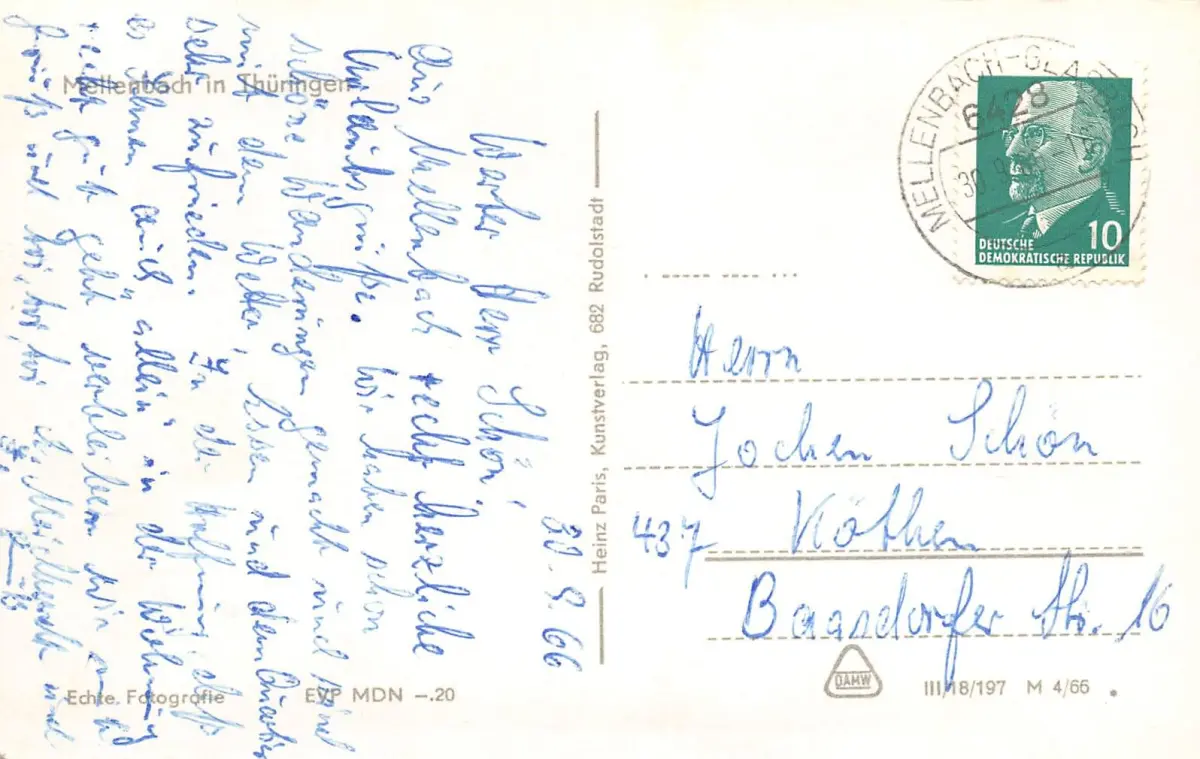 Mellenbach in Thüringen
30.9.66
Werter Herr Schön,
Aus Mellenbach recht herzliche
Urlaubsgrüße. Wir haben schon
schöne Wanderungen gemacht und sind
mit dem Wetter, Essen und dem Quartier
sehr zufrieden. In der Hoffnung, daß
es Ihnen auch allein in der Wohnung
recht gut geht verbleiben wir mit
Gruß und toi, toi, toi
Echte Fotografie
EVP MDN –.20
Heinz Paris, Kunstverlag, 682 Rudolstadt
MELLENBACH-GLASBACH
6428
30.9.
DEUTSCHE
DEMOKRATISCHE REPUBLIK
10
Herrn
Jochen Schön
437 Köthen
Baasdorfer Str. 16
DAMW
III/18/197 M 4/66